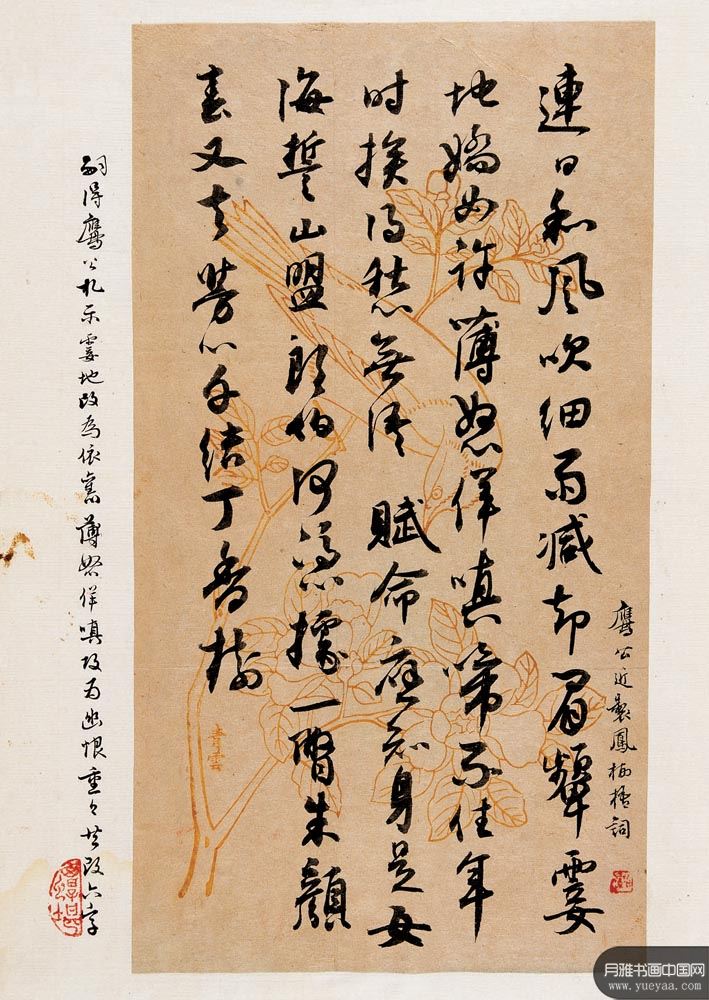 鷹公近製鳳栖梧詞
連日和風吹細雨減却眉顰霎
地嬌如許薄怒佯嗔啼不住年
时挨得愁無緒 賦命應知身是女
海誓山盟何憑據一瞥朱顏
春又去芳心千结丁香樹
青雲
嗣得鷹公札示霎地改為依舊薄怒佯嗔改為幽恨重々共改六字
月雅书画中国网
www.yueyaa.com